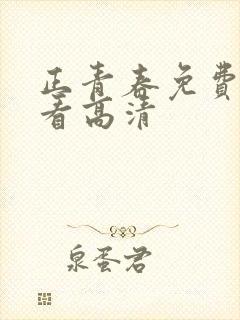 正青春免费
看高清
泉蛋君